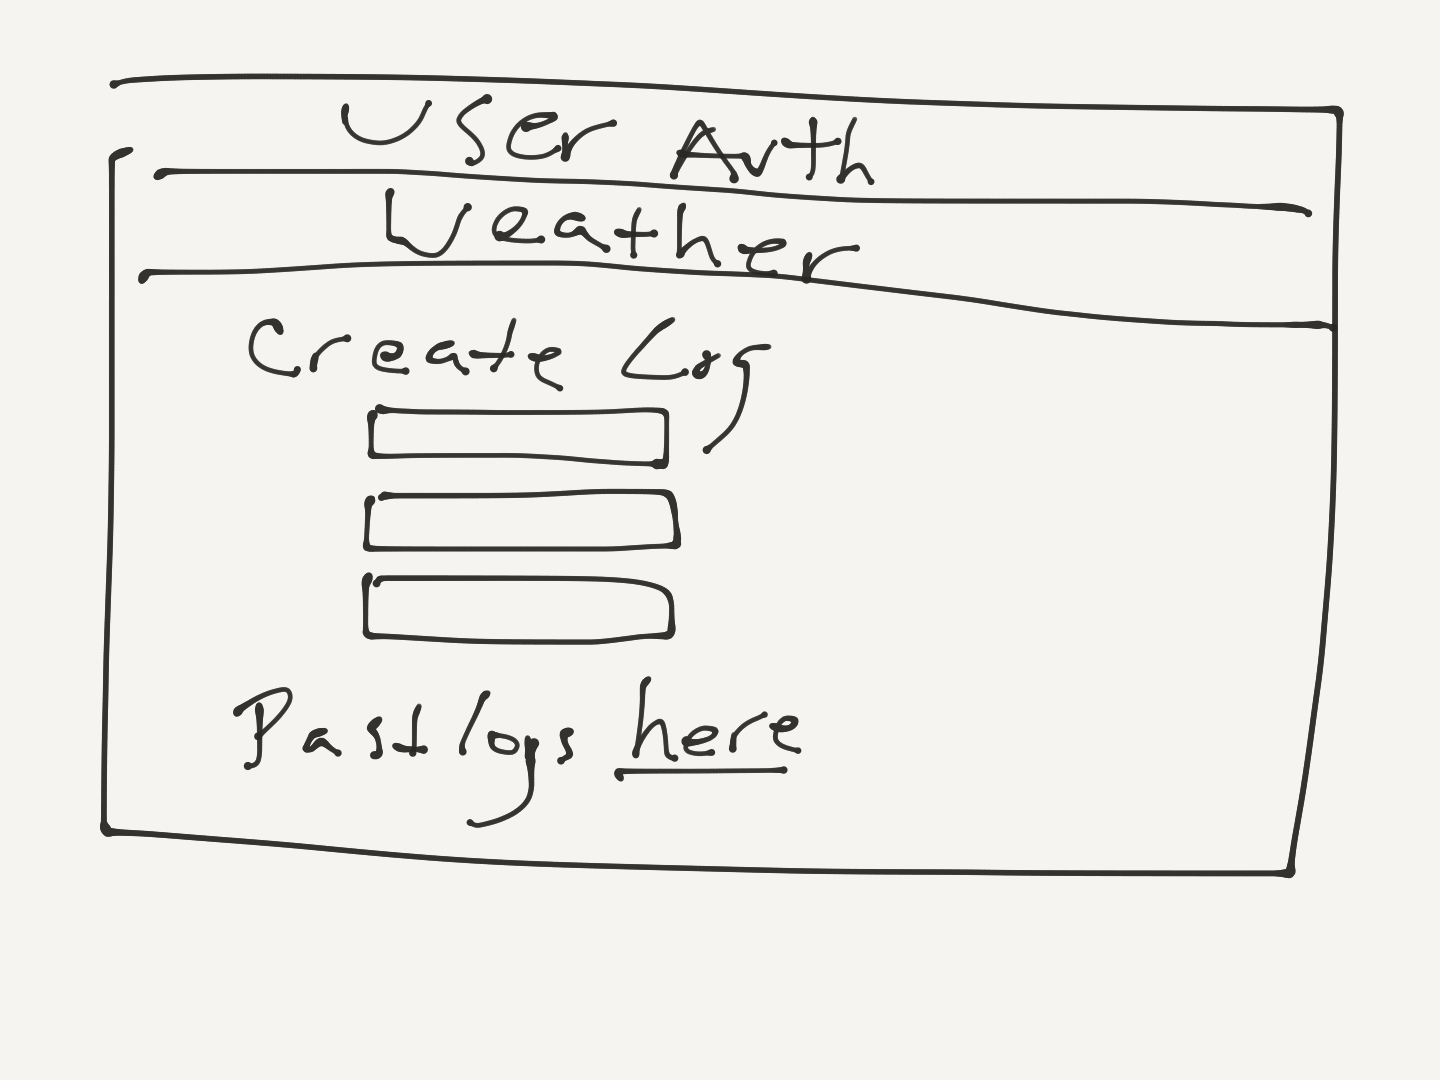 User Auth
Weather
Create Log
Past logs here